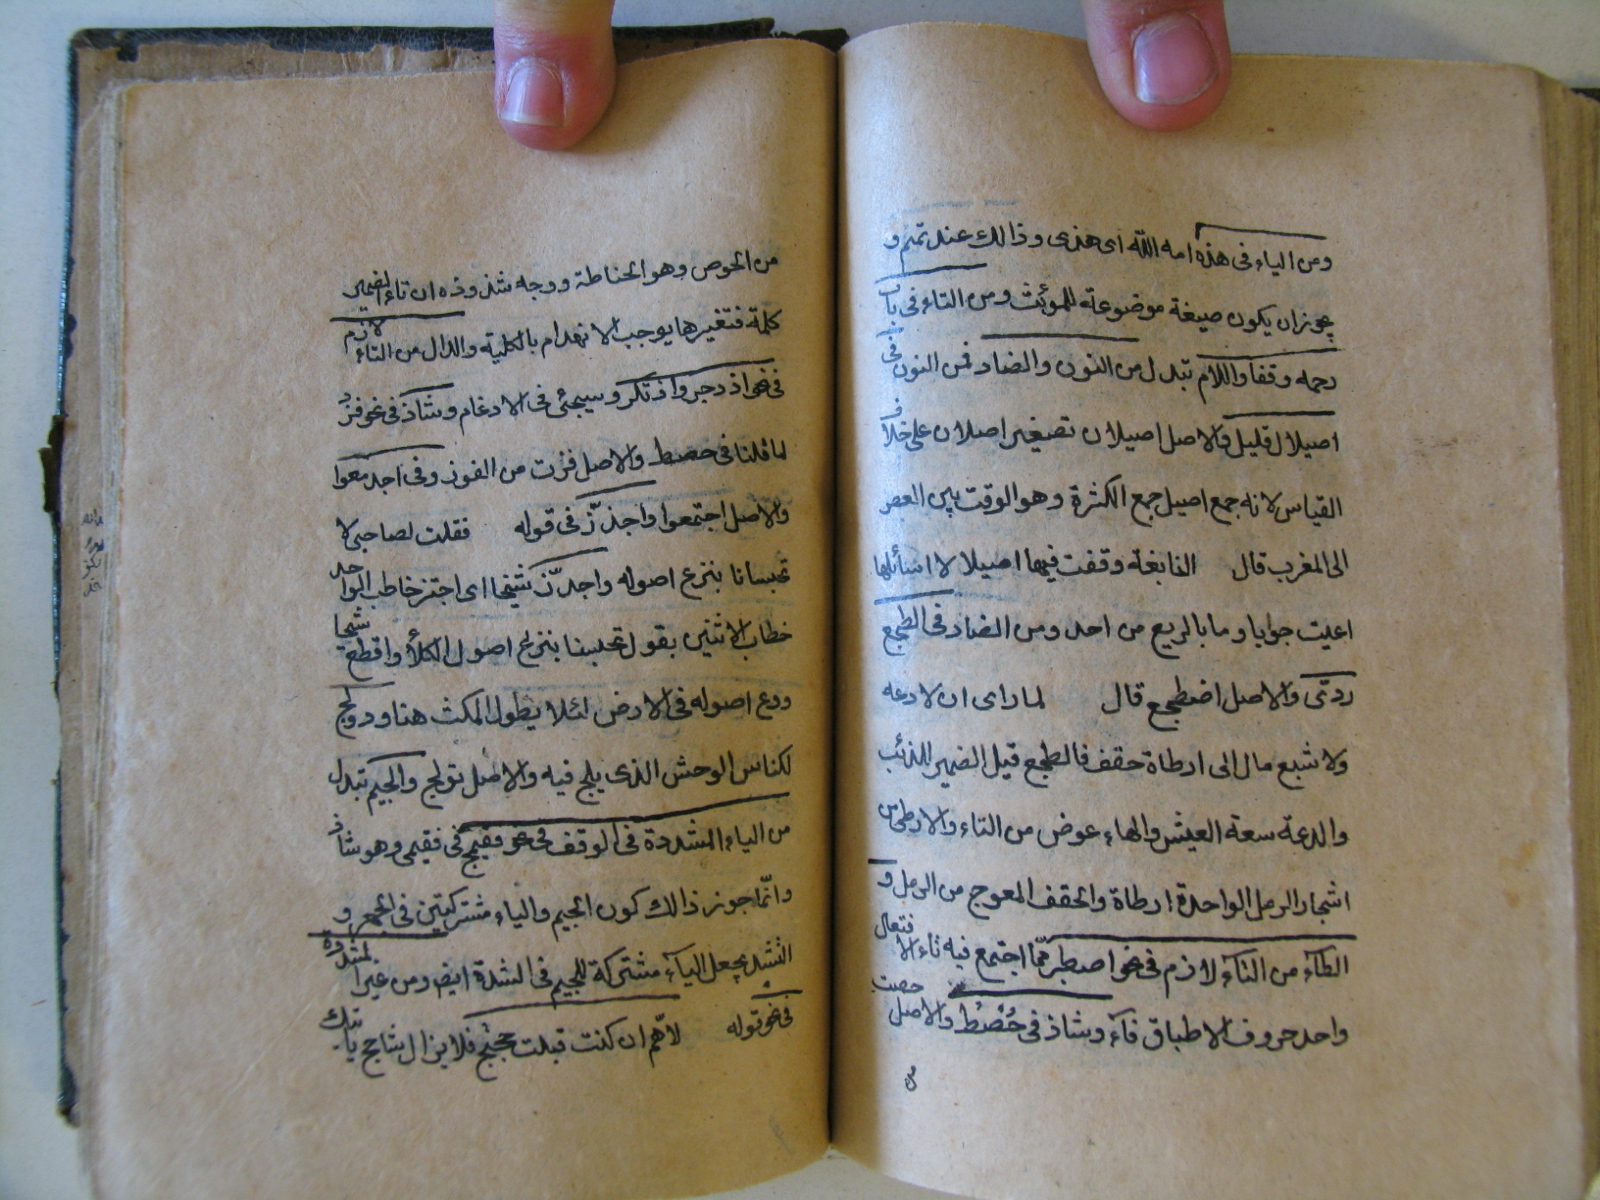 ومن الياء فى هذه امه الله اى هذى وذالك عند تميم و
يجوز ان يكون صيغة موضوعة للمونث ومن التاء فى باب
رحمه وقفا واللام تبدل من النون والضاد فمن النون فى
اصيلال قليل والاصل اصيلان تصغير اصلان على خلاف
القياس لانه جمع اصيل جمع الكثرة وهو الوقت بين العصر
الى المغرب قال النابغة وقفت فيها اصيلالا اسائلها
اعيت جوابا وما بالربع من احد ومن الضاد فى الطجع
ردئ والاصل اضطجع قال لما راى ان لا دعه
ولا شبع مال الى ارطاة حقف فالطجع قيل الضمير للذئب
والدعة سعة العيش والهاء عوض من التاء والارطى من
اشجار الرمل الواحدة ارطاة والحقف المعوج من الرمل و
الطاء من التاء لازم فى نحو اصطبر مما اجتمع فيه تاء الافتعال
واحد حروف الاطباق فاء وشاذ فى حُصْطُ والاصل حصت
من
من الحوص وهو الخياطة ووجه شذوذه ان تاء الضمير
كلمة فتغيرها يوجب الانهدام بالكلية والدال من التاء لازم
فى نحو ازدجر واذتكر وسيجئ فى الادغام وشاذ فى نحو فزد
لما قلنا فى حصط والاصل فزت من الفوز وفى اجدمعوا
والاصل اجتمعوا واجدزّ فى قوله فقلت لصاحبى لا
تحبسانا بنزع اصوله واجدزّ شيحا اى اجتز خاطب الواحد
خطاب الاثنين يقول تحبسنا بنزع اصول الكلأ واقطع شيحا
ودع اصوله فى الارض لئلا يطول المكث هنا ودولج
لكناس الوحش الذى يلج فيه والاصل تولج والجيم تبدل
من الياء المشددة فى الوقف فى نحو فقيمج فى فقيمى وهو شاذ
وانما جوز ذالك كون الجيم والياء مشتركتين فى الجهر و
التشديد يجعل الياء مشتركة للجيم فى الشدة ايضا ومن غير المشددة
فى نحو قوله لاهم ان كنت قبلت حجتج فلا يزال شاحج ياتيك